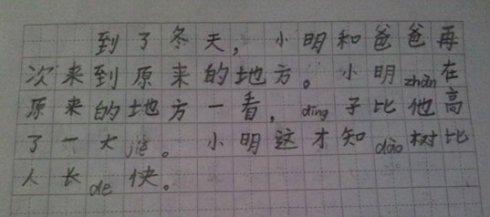 到了冬天，小明和爸爸再
次来到原来的地方。小明zhàn在
原来的地方一看，dīng子比他高
了一大jié。小明这才知dào树比
人长de快。